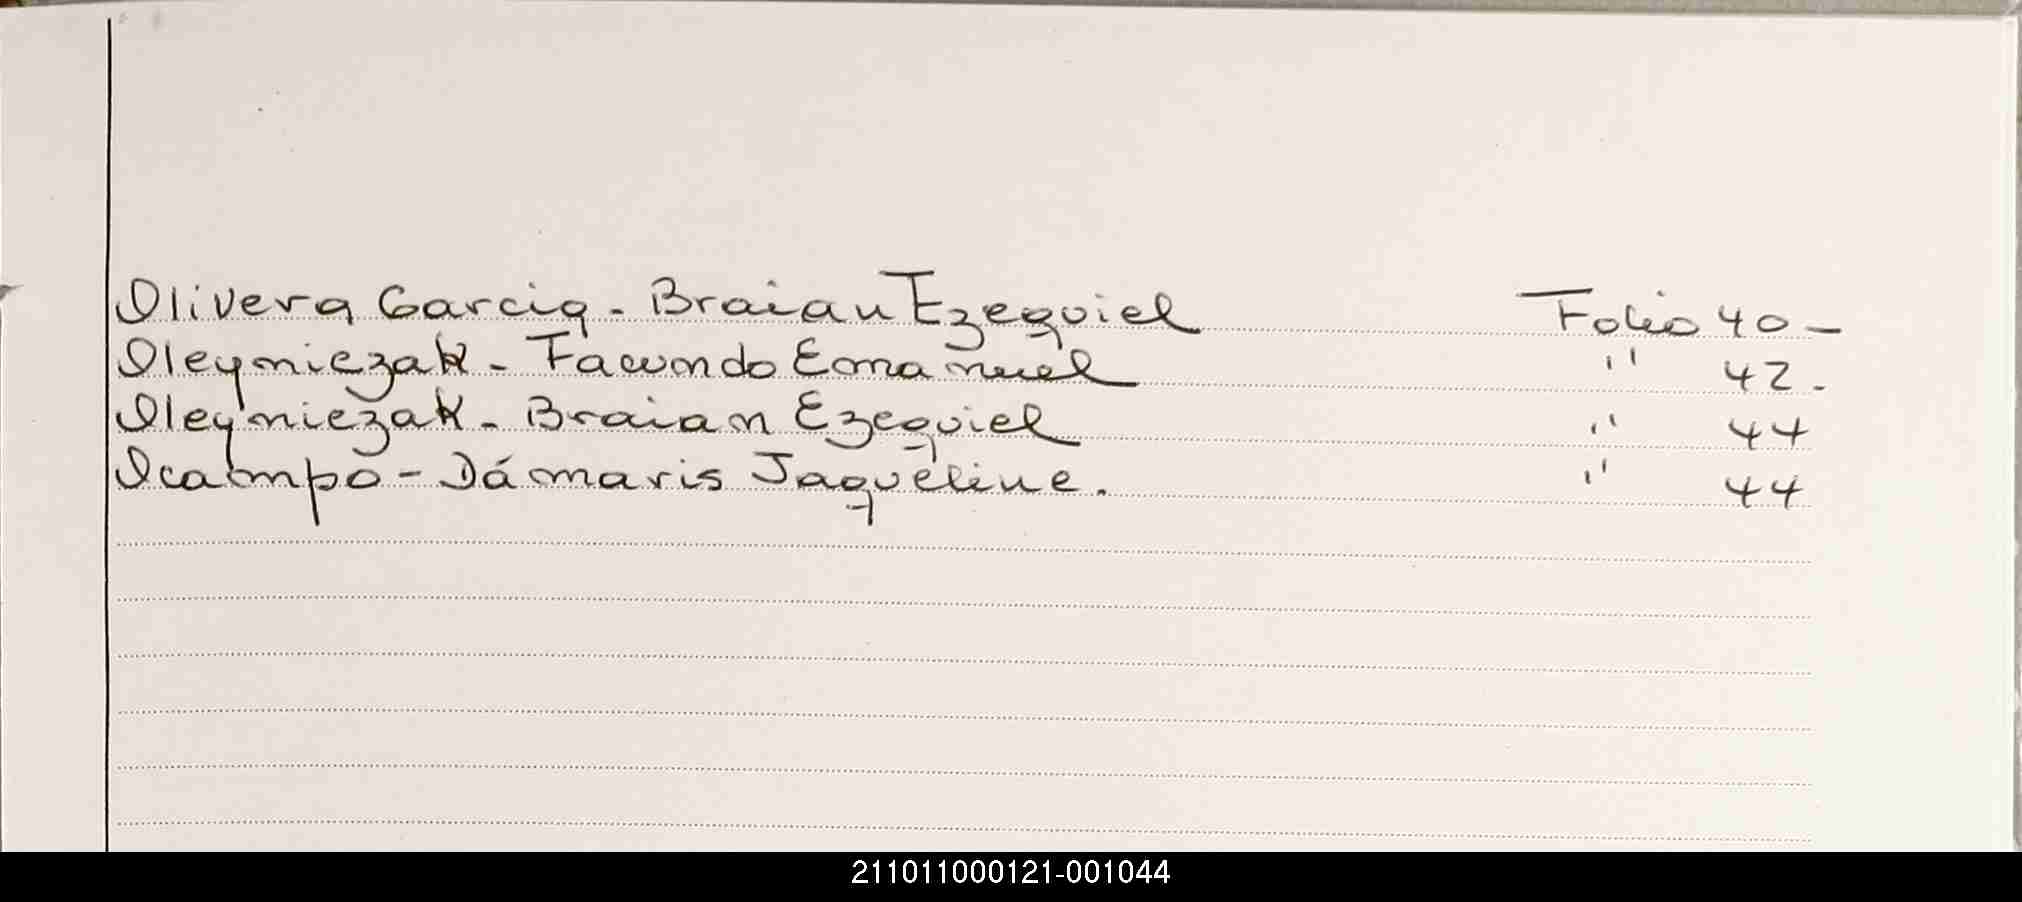 Olivera Garcia - Braian Ezequiel Folio 40 -
Oleyniezak - Facundo Emanuel " 42 -
Oleyniezak - Braian Ezequiel " 44
Ocampo - Dámaris Jaqueline. " 44
211011000121-001044